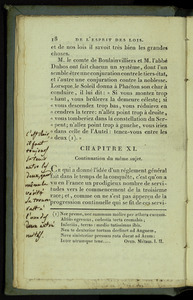 18 DE L'ESPRIT DES LOIS.
et de nos lois il savoit très bien les grandes
choses.
M. le comte de Boulainvilliers et M. l'abbé
Dubos ont fait chacun un système, dont l'un
semble être une conjuration contre le tiers-état,
et l'autre une conjuration contre la noblesse.
Lorsque le Soleil donna à Phaéton son char à
conduire, il lui dit : Si vous montez trop
haut, vous brûlerez la demeure céleste; si
vous descendez trop bas, vous réduirez en
cendres la terre : n'allez point trop à droite,
vous tomberiez dans la constellation du Ser-
pent; n'allez point trop à gauche, vous iriez
dans celle de l'Autel : tenez-vous entre les
deux (1).
CHAPITRE XI.
Continuation du même sujet.
Ce qui a donné l'idée d'un règlement général
fait dans le temps de la conquête, c'est qu'on a
vu en France un prodigieux nombre de servi-
tudes vers le commencement de la troisième
race; et, comme on ne s'est pas aperçu de la
progression continuelle qui se fit de ces servi-
(1) Nec preme, nec summum molire per æthera currum.
Altiùs egressus, cœlestia tecta cremabis;
Inferiùs, terras : medio tutissimus ibis.
Neu te dexterior tortum declinet ad Anguem,
Neve sinisterior pressam rota ducat ad Aram :
Inter utrumque tene.... OVID. Métam. l. II.